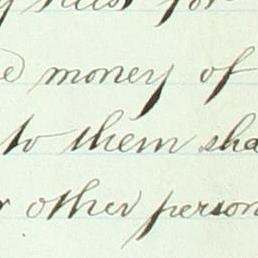 for
money of
to them sha
other person